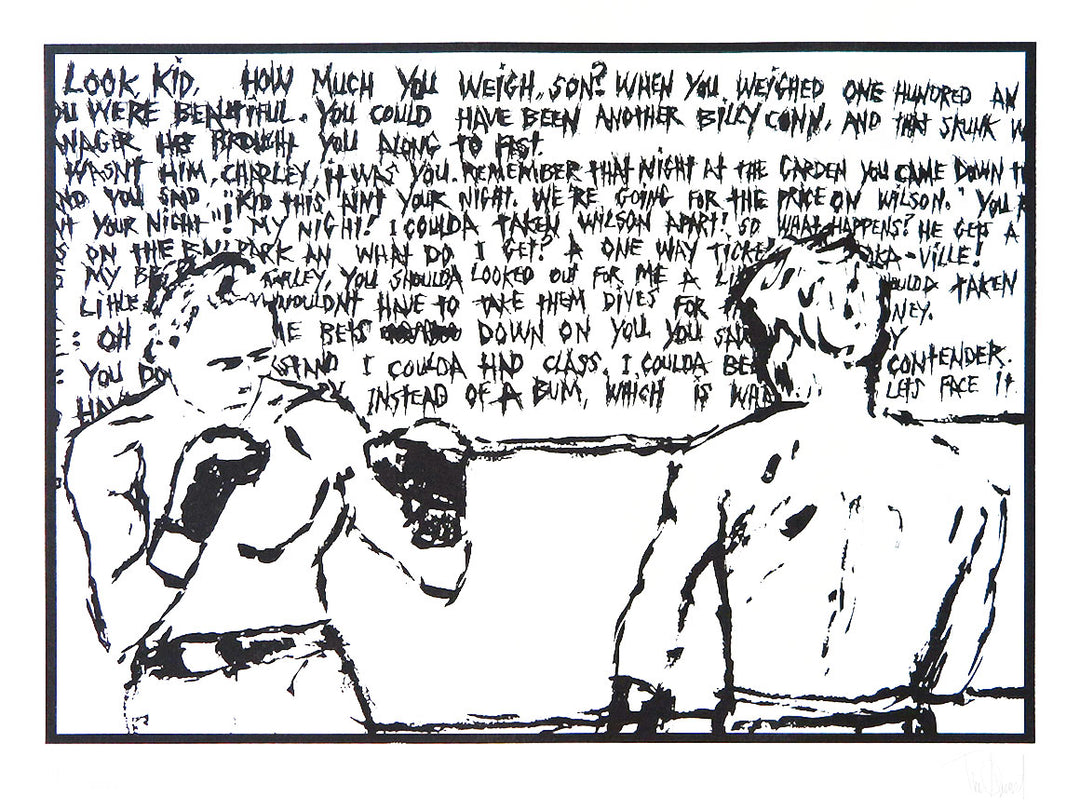 LOOK KID, HOW MUCH YOU WEIGH, SON? WHEN YOU WEIGHED ONE HUNDRED AN
OU WERE BEAUTIFUL. YOU COULD HAVE BEEN ANOTHER BILLY CONN, AND THAT SKUNK W
NAGER HE BROUGHT YOU ALONG TO FAST.
WASNT HIM, CHARLEY, IT WAS YOU. REMEMBER THAT NIGHT AT THE GARDEN YOU CAME DOWN T
ND YOU SAID "KID THIS AINT YOUR NIGHT. WE'RE GOING FOR THE PRICE ON WILSON." YOU R
NT YOUR NIGHT"! MY NIGHT! I COULDA TAKEN WILSON APART! SO WHAT HAPPENS? HE GETS A
S ON THE BALLPARK AN WHAT DO I GET? A ONE WAY TICKE KA-VILLE!
S MY B RLEY, YOU SHOULDA LOOKED OUT FOR ME A LI OULDA TAKEN
LITTLE WOULDNT HAVE TO TAKE THEM DIVES FOR TH NEY.
: OH ME BETS DOWN ON YOU YOU SA Y
: YOU DO STAND I COULDA HAD CLASS. I COULDA BEE CONTENDER.
HAV Y INSTEAD OF A BUM, WHICH IS WHA LETS FACE IT